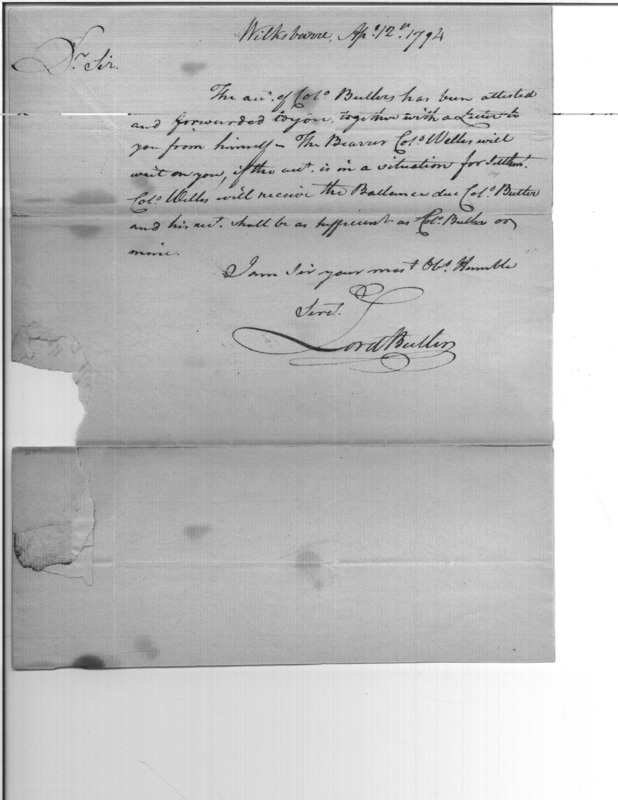 Wilksbarre, Apl. 12th. 1794
Dr. Sir.
The acct. of Colo. Butlers has been attested
and forwarded to you, together with a Letter to
you from himself – The Bearer Colo. Welles will
wait on you, if the acct. is in a situation for Settlmt.
Colo. Welles will receive the Ballance due Colo. Butler
and his rect. shall be as sufficient as Colo. Butler or
mine.
I am Sir your most Obt. Humble
Servt.
Lord Butler